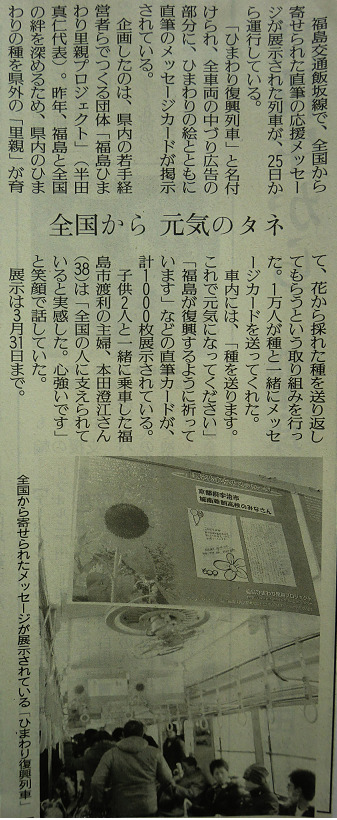 福島交通飯坂線で、全国から
寄せられた直筆の応援メッセー
ジが展示された列車が、25日か
ら運行している。
「ひまわり復興列車」と名付
けられ、全車両の中づり広告の
部分に、ひまわりの絵とともに
直筆のメッセージカードが掲示
されている。
企画したのは、県内の若手経
営者らでつくる団体「福島ひま
わり里親プロジェクト」(半田
真仁代表)。昨年、福島と全国
の絆を深めるため、県内のひま
わりの種を県外の「里親」が育
全国から 元気のタネ
て、花から採れた種を送り返し
てもらうという取り組みを行っ
た。1万人が種と一緒にメッセ
ージカードを送ってくれた。
車内には、「種を送ります。
これで元気になってください」
「福島が復興するように祈って
います」などの直筆カードが、
計1000枚展示されている。
子供2人と一緒に乗車した福
島市渡利の主婦、本田澄江さん
(38)は「全国の人に支えられて
いると実感した。心強いです」
と笑顔で話していた。
展示は3月31日まで。
京都府宇治市
城南菱創高校のみなさん
福島ひまわり里親プロジェクト
全国から寄せられたメッセージが展示されている「ひまわり復興列車」